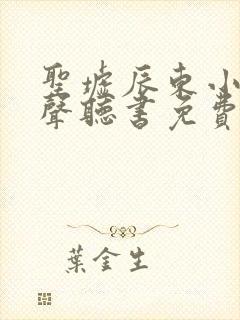 聖墟辰東小
聲聽書免費
葉金生